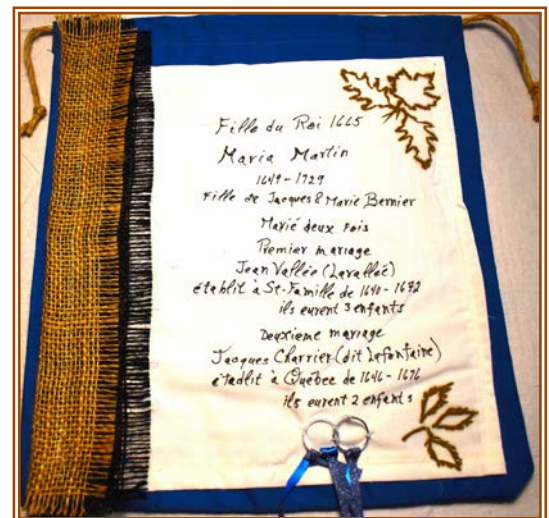 Fille du Roi 1665
Maria Martin
1649-1729
Fille de Jacques & Marie Bernier
Marié deux fois
Premier mariage
Jean Vallée (Lavallée)
établit à St-Famille de 1640-1672
ils eurent 3 enfants
Deuxieme mariage
Jacques Charrier (dit Lafontaine)
établit à Québec de 1646-1676
ils eurent 2 enfants